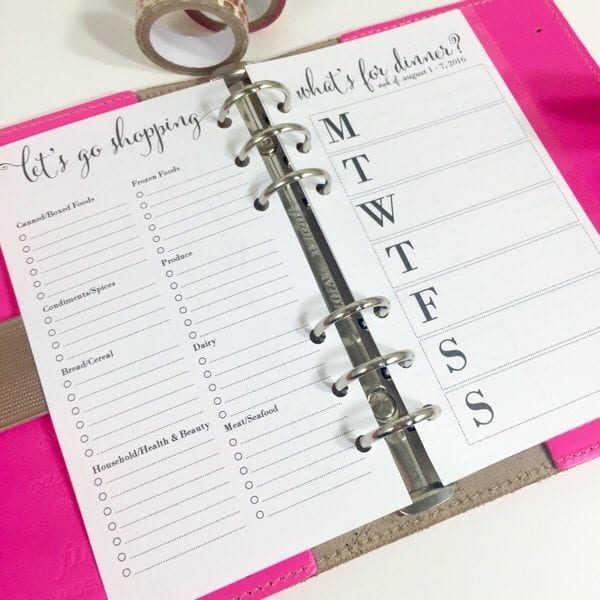 let's go shopping
Canned/Boxed Foods
Condiments/Spices
Bread/Cereal
Household/Health & Beauty
Frozen Foods
Produce
Dairy
Meat/Seafood
what's for dinner?
week of august 1 - 7, 2016
M
T
W
T
F
S
S